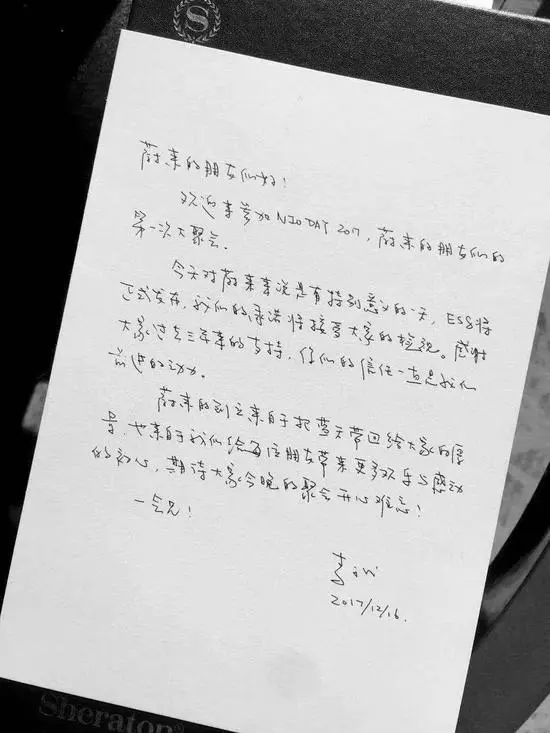 蔚来的朋友们好！
欢迎来参加NIO DAY 2017，蔚来的朋友们的
第一次大聚会。
今天对蔚来来说是有特别意义的一天，ES8将
正式发布，我们的承诺将接受大家的检视。感谢
大家过去三年来的支持，你们的信任一直是我们
前进的动力。
蔚来的创立来自于把蓝天带回给大家的愿
景，也来自于我们给每位朋友带来更多欢乐与感动
的初心，期待大家今晚的聚会开心难忘！
一会见！
李斌
2017/12/16.
Sheraton®